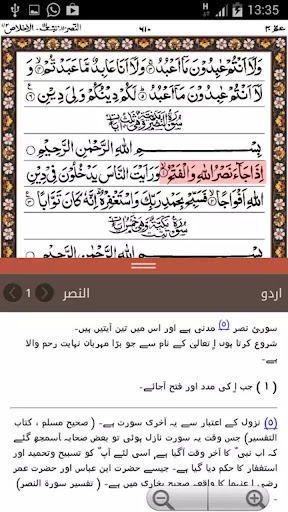 13:35
٦١٠
وَلَآ اَنْتُمْ عٰبِدُوْنَ مَآ اَعْبُدُ ۝٣ وَلَآ اَنَا عَابِدٌ مَّا عَبَدْتُّمْ ۝٤
وَلَآ اَنْتُمْ عٰبِدُوْنَ مَآ اَعْبُدُ ۝٥ لَكُمْ دِيْنُكُمْ وَلِيَ دِيْنِ ۝٦
بِسْمِ اللّٰهِ الرَّحْمٰنِ الرَّحِيْمِ
اِذَا جَآءَ نَصْرُ اللّٰهِ وَالْفَتْحُ ۝١ وَرَاَيْتَ النَّاسَ يَدْخُلُوْنَ فِيْ دِيْنِ
اللّٰهِ اَفْوَاجًا ۝٢ فَسَبِّحْ بِحَمْدِ رَبِّكَ وَاسْتَغْفِرْهُ اِنَّهٗ كَانَ تَوَّابًا ۝٣
بِسْمِ اللّٰهِ الرَّحْمٰنِ الرَّحِيْمِ
اردو النصر 1
سورئ نصر (٥) مدنی ہے اور اس میں تین آیتیں ہیں۔
شروع کرتا ہوں اٖ تعالیٰ کے نام سے جو بڑا مہربان نہایت رحم والا ہے۔
(١) جب اٖ کی مدد اور فتح آجائے۔
(٥) نزول کے اعتبار سے یہ آخری سورت ہے۔ (صحیح مسلم ، کتاب
التفسیر) جس وقت یہ سورت نازل ہوئی تو بعض صحابہ سمجھ گئے
کہ اب نبی کا آخر وقت آگیا ہے اسی لئے آپ کو تسبیح وتحمید اور
استغفار کا حکم دیا گیا ہے۔ جیسے حضرت ابن عباس اور حضرت عمر
رضی عنہما کا واقعہ صحیح بخاری میں ہے۔ (تفسیر سورۃ النصر)